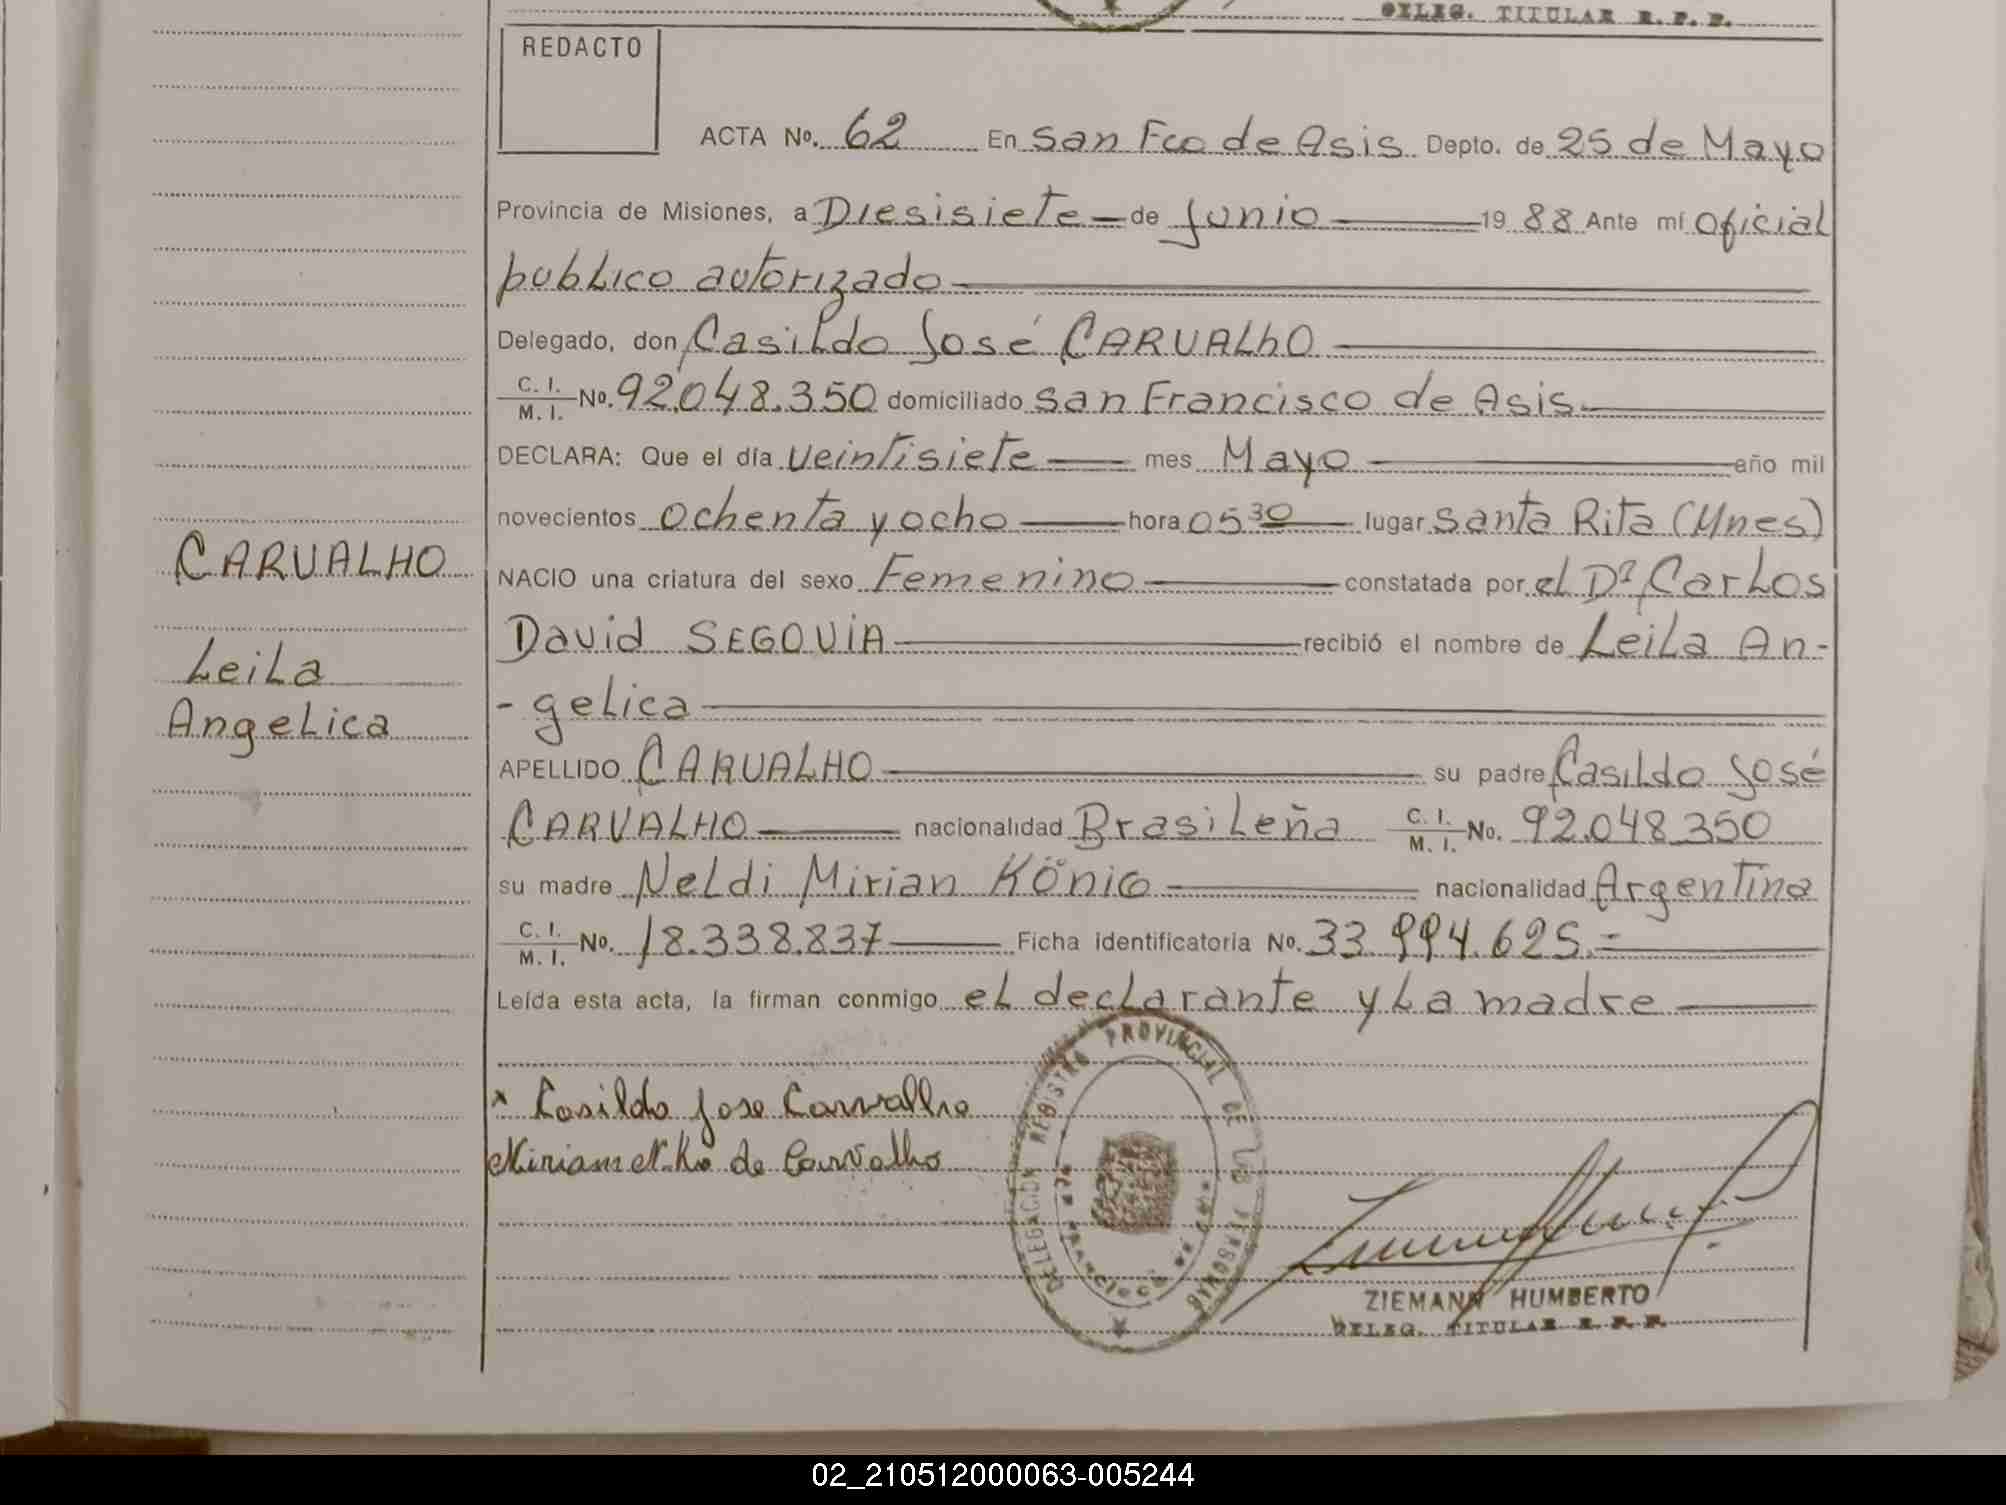 DELEG. TITULAR R. P. P.
REDACTO
ACTA No. 62 En San Fco de Asis Depto. de 25 de Mayo
Provincia de Misiones, a Diesisiete de Junio 19 88 Ante mí Oficial
publico autorizado
Delegado, don Casildo José CARVALHO
C. I. M. I. No. 92.048.350 domiciliado San Francisco de Asis
DECLARA: Que el día veintisiete mes Mayo año mil
novecientos ochenta y ocho hora 05 30 lugar Santa Rita (Mnes)
CARVALHO
NACIO una criatura del sexo Femenino constatada por el Dr Carlos
David SEGOVIA recibió el nombre de Leila An-
Leila
-gelica
Angelica
APELLIDO CARVALHO su padre Casildo José
CARVALHO nacionalidad Brasileña C. I. M. I. No. 92.048.350
su madre Neldi Mirian König nacionalidad Argentina
C. I. M. I. No. 18.338.837 Ficha identificatoria No. 33.994.625.=
Leída esta acta, la firman conmigo el declarante y la madre
x Casildo Jose Carvalho
Miriam N. Kö de Carvalho
DELEGACION REGISTRO PROVINCIAL DE LAS PERSONAS
ZIEMANN HUMBERTO
DELEG. TITULAR R. P. P.
02_210512000063-005244